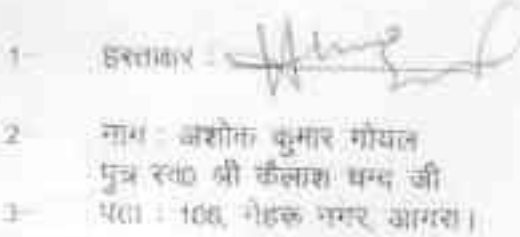 1- हस्ताक्षर :
2 नाम : अशोक कुमार गोयल
पुत्र स्व0 श्री कैलाश चन्द जी
3- पता : 106, नेहरू नगर, आगरा।